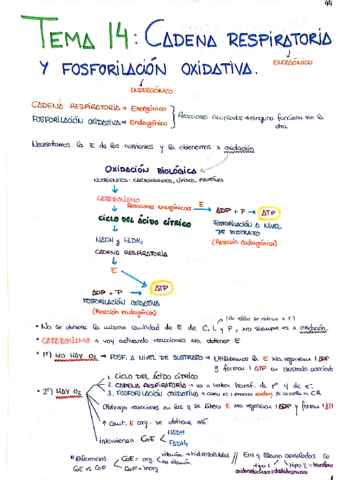 44
TEMA 14: CADENA RESPIRATORIA
Y FOSFORILACIÓN OXIDATIVA.
EXERGÓNICO
ENDERGÓNICO
CADENA RESPIRATORIA → Exergónico
FOSFORILACIÓN OXIDATIVA → Endergónico
Reacciones acopladas → ninguna funciona sin la otra.
Necesitamos la E de los nutrientes y la obtenemos x oxidación
OXIDACIÓN BIOLÓGICA
NUTRIENTES: CARBOHIDRATOS, LÍPIDOS, PROTEÍNAS
CATABOLISMO
Reacciones exergónicas E → ADP + P → ATP
CICLO DEL ÁCIDO CÍTRICO
FOSFORILACIÓN A NIVEL
DE SUSTRATO
(Reacción endergónica)
NADH y FADH₂
CADENA RESPIRATORIA
E
ADP + P → ATP
FOSFORILACIÓN OXIDATIVA
(Reacción endergónica)
• No se obtiene la misma cantidad de E de C, L y P, no siempre es x oxidación.
• CATABOLISMO → voy activando reacciones para obtener E
• 1º) NO HAY O₂ → FOSF. A NIVEL DE SUSTRATO → Utilizamos la E para regenerar 1 ADP
y formar 1 ATP
• 2º) HAY O₂
1. CICLO DEL ÁCIDO CÍTRICO
2. CADENA RESPIRATORIA → va a haber transf. de p⁺ y de e⁻.
3. FOSFORILACIÓN OXIDATIVA →
Obtengo reacciones en las q se libera E para regenerar 1 ADP y formar 1 ATP
↑ cant. E org. se obtiene así
intervienen CoE
NADH
FADH₂
• Diferencias
CoE vs CoF
CoE → org.
CoF → inorg